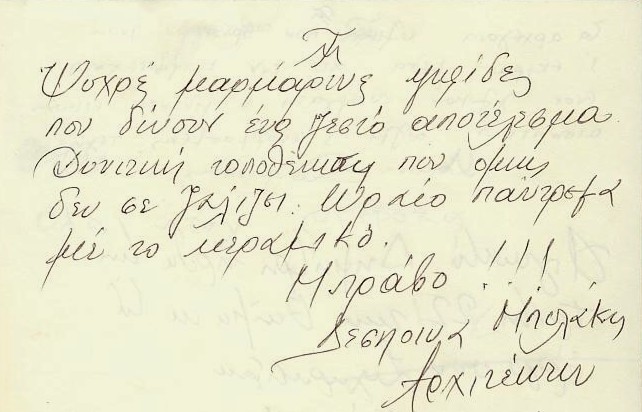 Ψυχρές μαρμάρινες ψηφίδες
που δίνουν ένα ζεστό αποτέλεσμα.
Δονιτική τοποθέτηση που όμως
δεν σε ζαλίζει. Ωραίο πάντρεμα
με το κεραμικό.
Μπράβο !!!
Δέσποινα Μπολάκη
Αρχιτέκτων